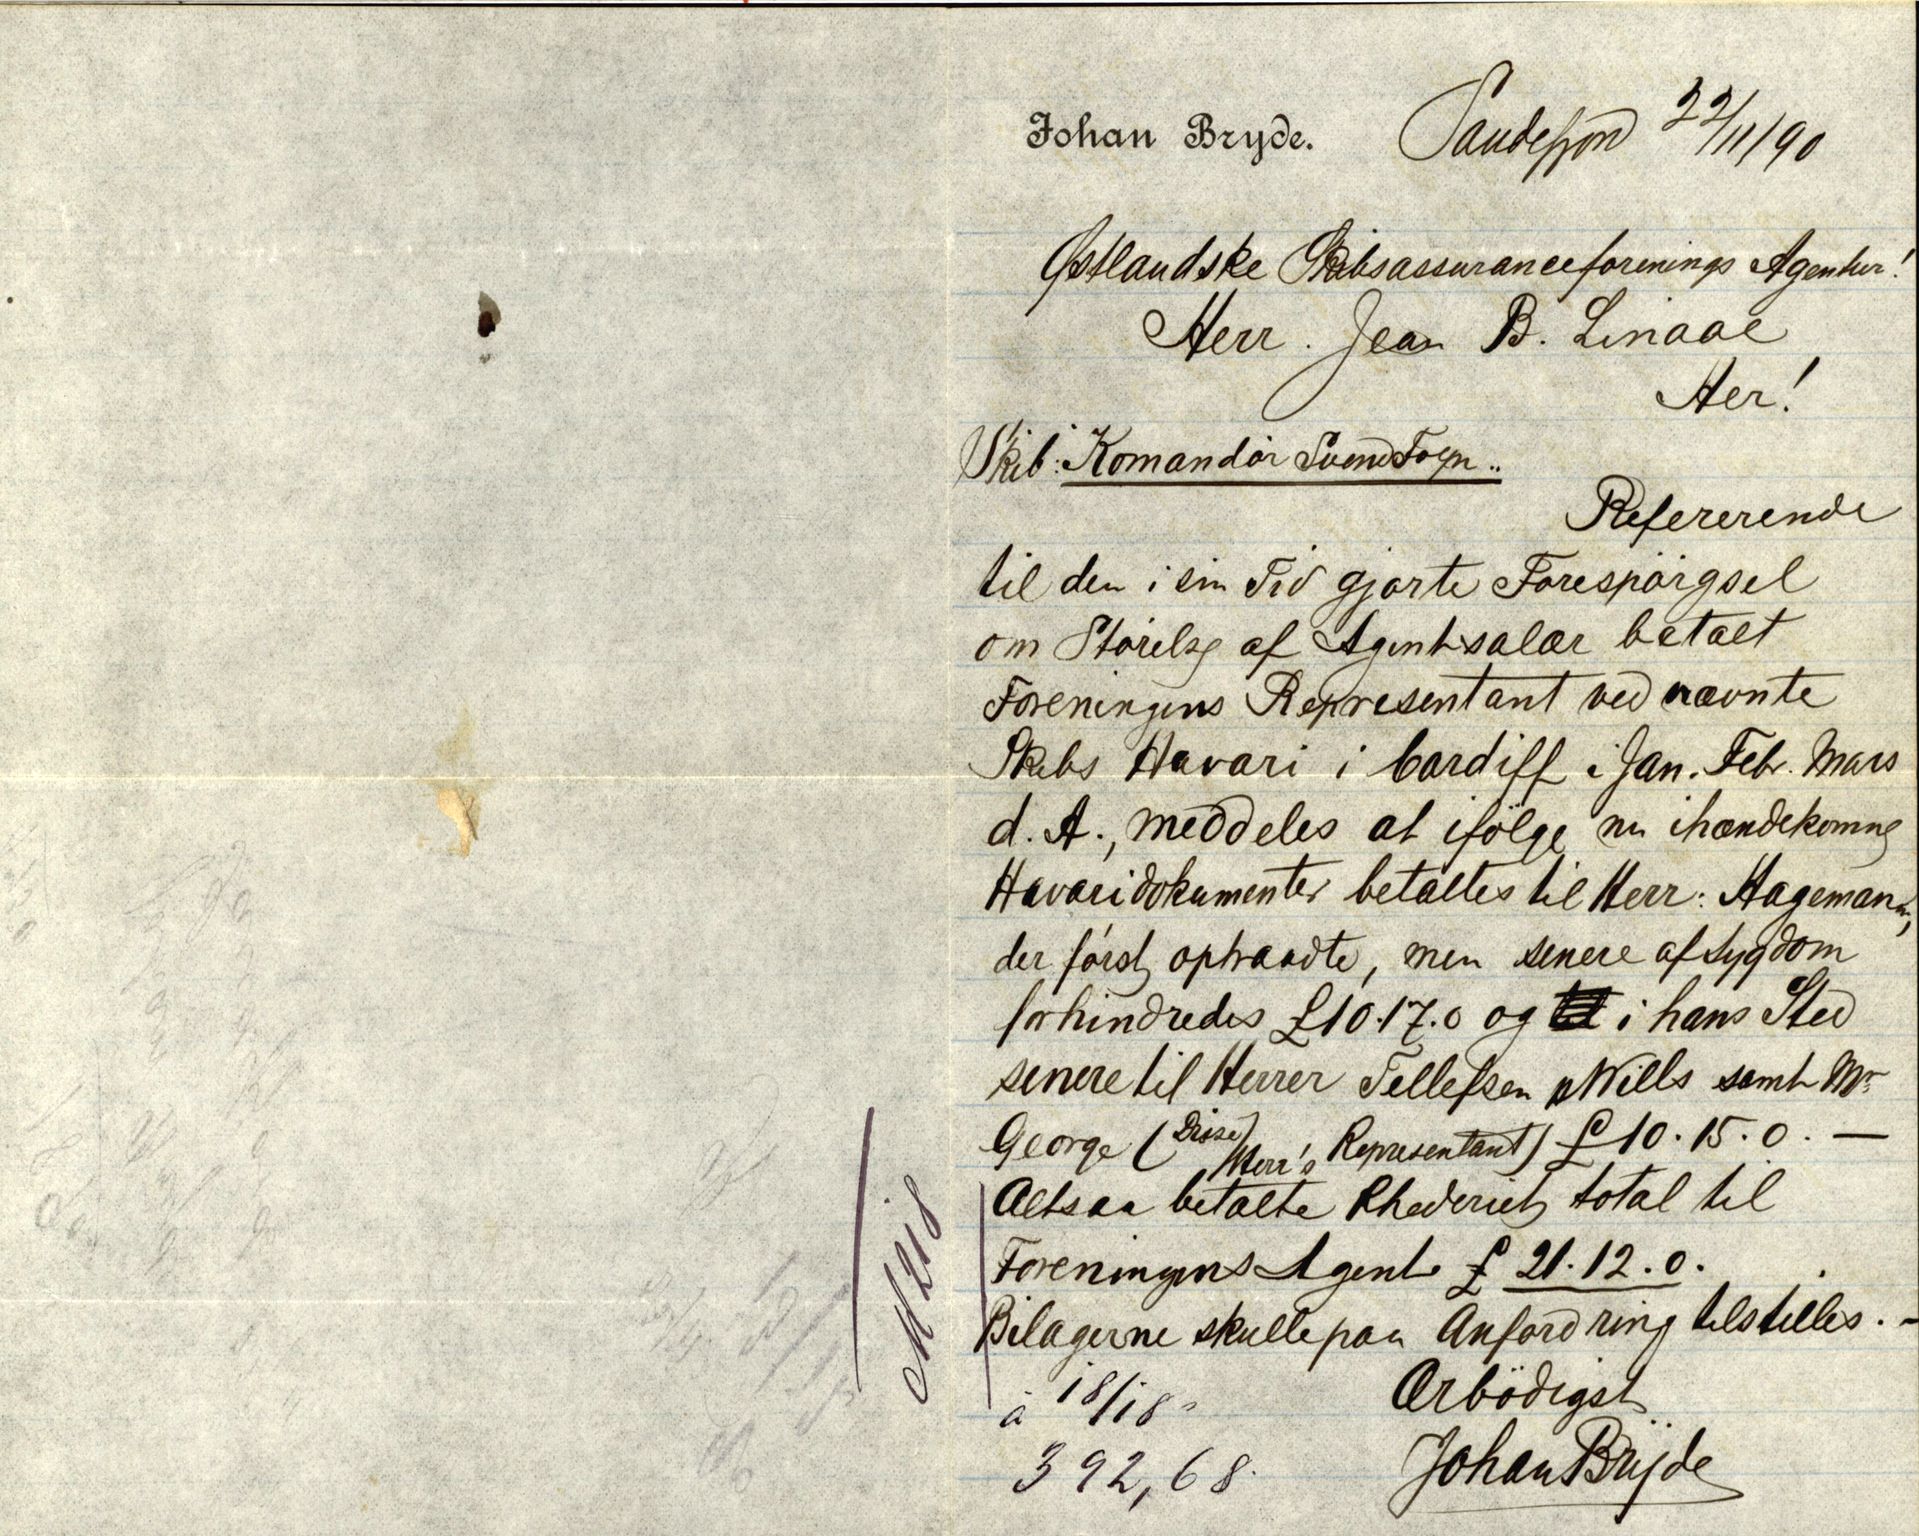 Johan Bryde.
Sandefjord 22/11/90
Østlandske Skibsassuranceforenings Agentur!
Herr. Jean B. Linaae
Her!
Skib: "Komandör Svend Foyn"
Refererende
til den i sin Tid gjorte Forespörgsel
om Störelse af Agentsalær betalt
Foreningens Representant ved nævnte
Skibs Havari i Cardiff i Jan. Febr. Mars
d. A., meddeles at ifölge nu ihændekomne
Havaridokumenter betaltes til Herr: Hagemann,
der först optraadte, men senere af Sygdom
forhindredes £10.17.0 og i hans Sted
senere til Herrer Tellefsen Wills samt Mr
George (Disse Herr's Representant) £10.15.0. —
Altsaa betalte Rhederiet total til
Foreningens Agent £ 21.12.0.
Bilagerne skulle paa Anfordring tilstilles. -
Ærbödigst
Johan Bryde
à 18/18
392,68.
M218